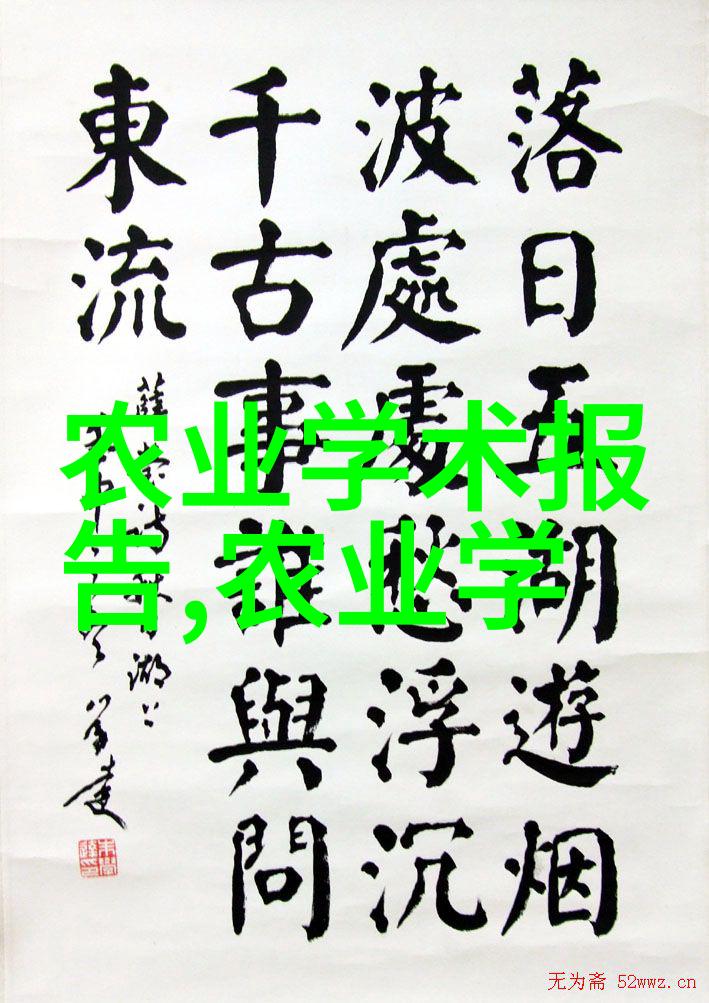 落日五湖遊烟
波處處愁浮沉
千古事誰與問
東流
农业学术报
告,农业学
无为斋 52wwz.cn